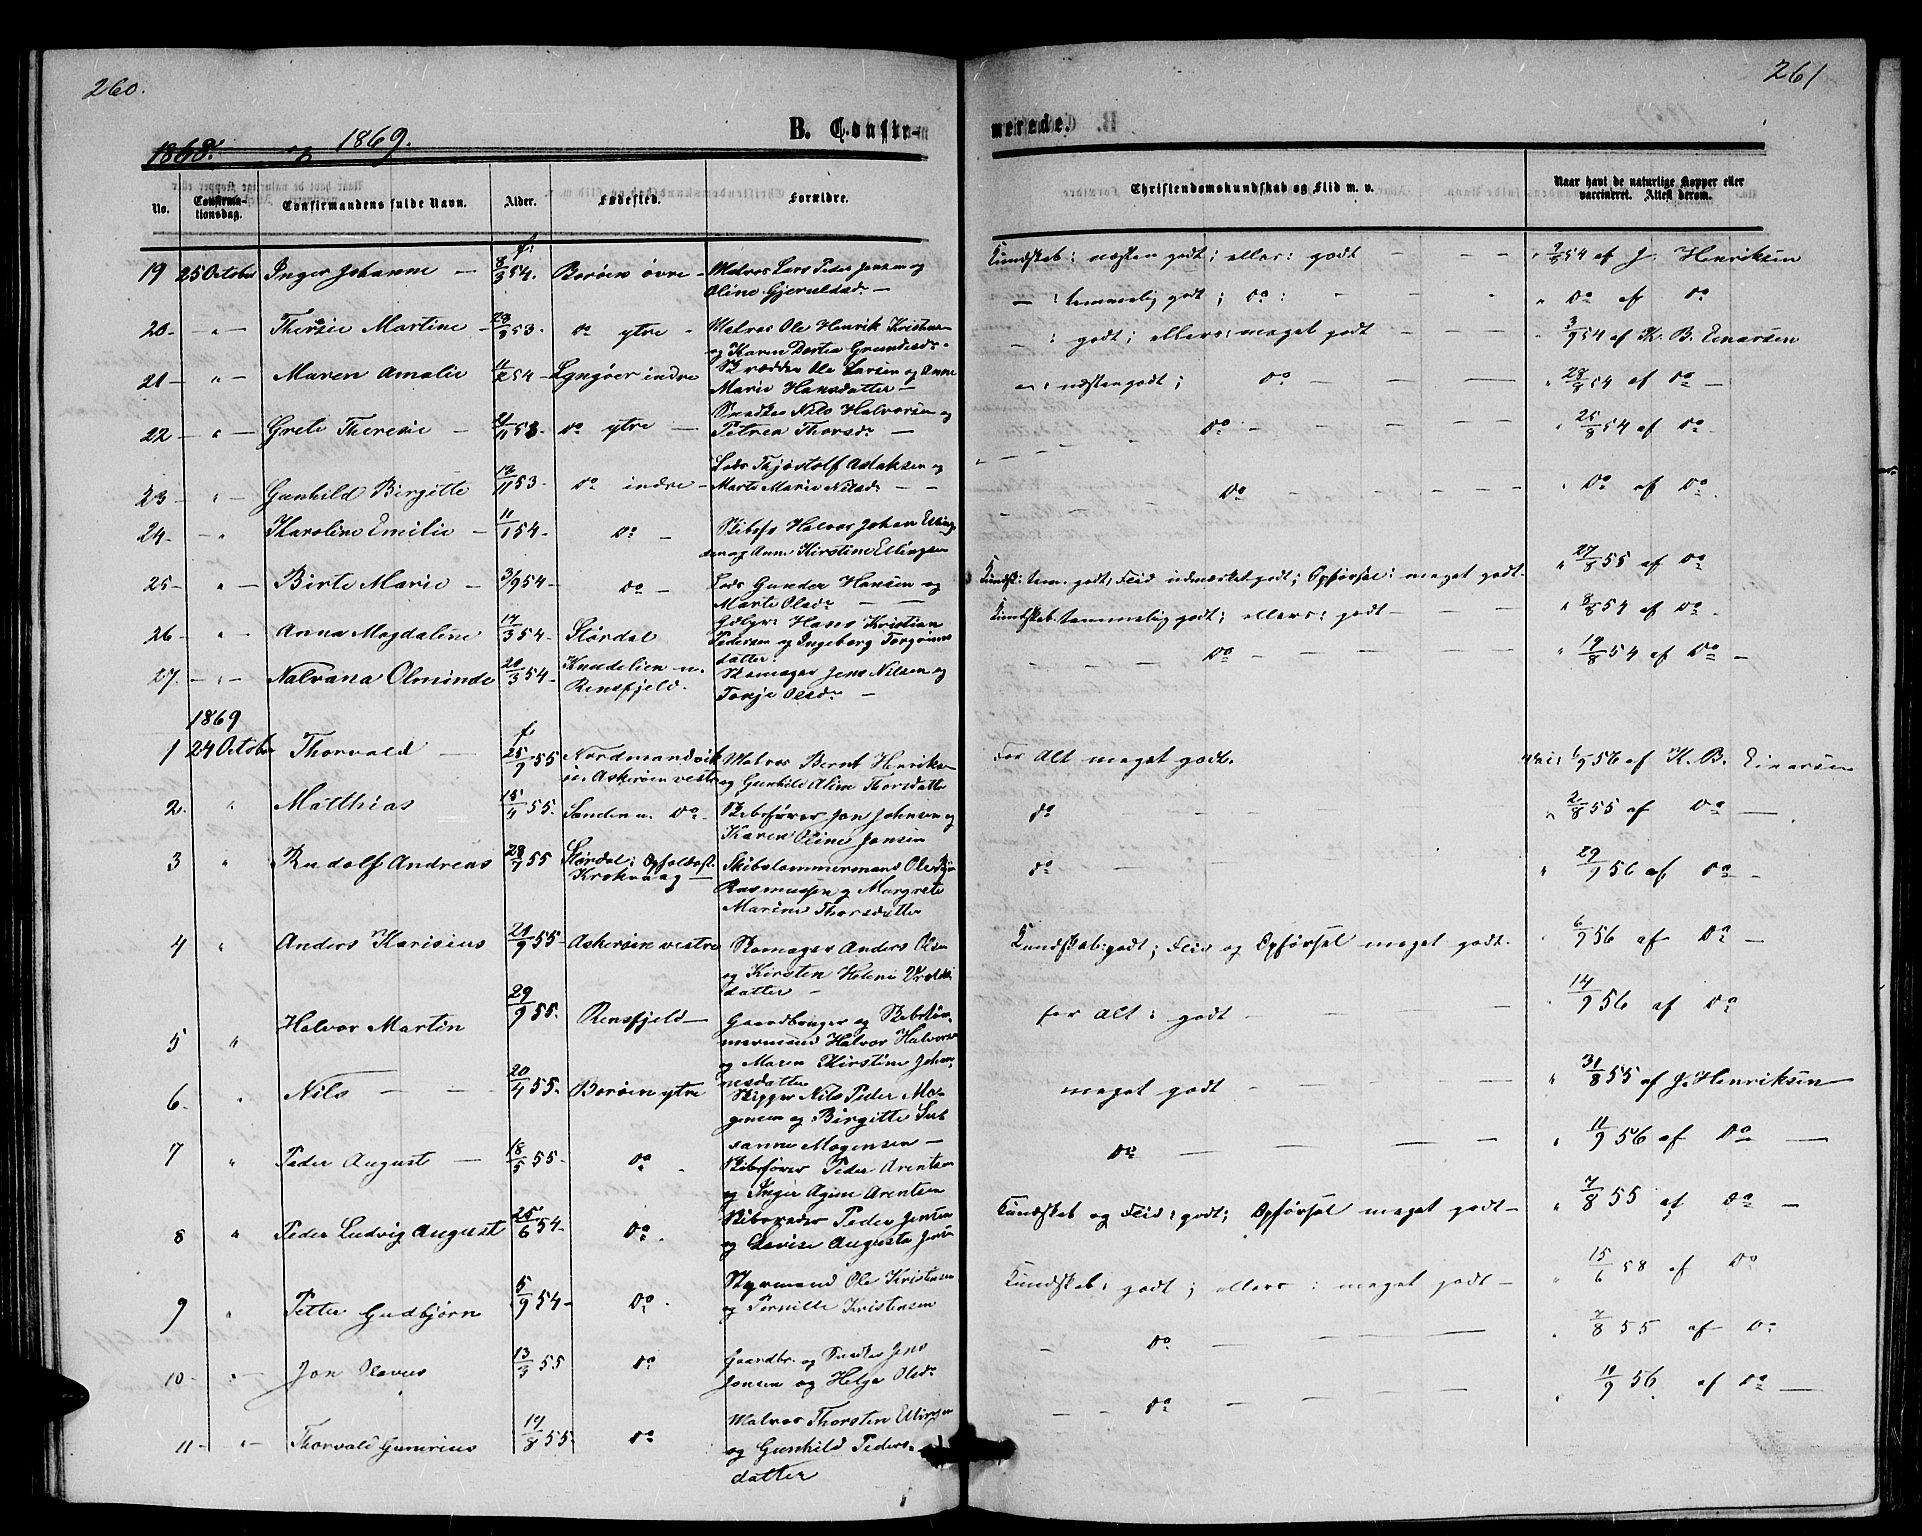 260.
261
1868. og 1869.
B. Confir-
merede.
No.
Confirma-
tionsdag.
Confirmandens fulde Navn.
Alder.
Fødested.
Forældre.
Christendomskundskab og Flid m. v.
Naar havt de naturlige Kopper eller
vaccineret. Attest derom.
f.
19 25 October Inger Johanne — 8/3 54. Borøen øvre - Matros Lars Peder Jensen og
Oline Gjeruldsd. —
20 - " - Therese Martine - 28/3 53. do ytre - Matros Ole Henrik Kristensen
og Karen Dortea Grundesdr.
21 - " - Maren Amalie 11/2 54 - Lyngøer indre Skrædder Ole Larsen og Anne
Marie Hansdatter —
22 - " - Grete Theresie - 21/11 53. do ytre — Snedker Nils Halvorsen og
Petren Thorsdr —
23 - " - Gunhild Birgitte 12/11 53 - do indre - Lods Thjøstolf Aslaksen og
Marte Marie Nilsdr — —
24 - " Karoline Emilie - 11/1 54 - do - Skibsf. Halvor Johan Elling-
sen og Anne Kirstine Ellingsen
25 - " - Birte Marie - 3/9 54 - do - Lods Gunder Hansen og
Marte Olsdr — —
26 - " - Anna Magdalene 14/3 54 - Størdal Gdbgr: Hans Kristian
Pedersen og Ingeborg Torgrims
datter.
27. - " - Nalvana Olminde 20/3 54 - Knudelien u.
Rensfjeld. Skomager Jens Nilsen og
Torje Olsdr —
1869
f.
1 24 October Thorvald — 25/9 55 Nordmandvik
u. Askerøen vestre Matros Bernt Henriksen
og Gunhild Aline Thorsdatter
2 " Matthias 15/4 55. Sanden u. Do - Skibsfører Jon Johnsen og
Karen Oline Jonsen
3 " Rudolf Andreas 28/7 55 Størdal; Opholdsst.
Krokvaag — Skibstømmermand Ole
Rasmussen og Margrete
Marine Thorsdatter
4 " Anders Karisius 21/9 55 - Askerøen vestre Skomager Anders Olsen
og Kirsten Helene
datter —
5 " Halvor Martin 29/9 55. Rensfjeld — Gaardbruger og Skibstøm-
mermand Halvor Halvorsen
og Maren Kirstine Johan-
nesdatter
6 " Nils — — 20/4 55. Borøen ytre Skipper Nils Peder Mo-
gensen og Birgitte Su-
sanne Mogensen —
7 " Peder August — 18/5 55 - do - Skibsfører Peder Arentsen
og Inger Arentsen
8 " Peder Ludvig August 25/6 54 - do. Skibsreder Peder Jensen
og Lovise Augusta Jensen
9 " Petter Gudbjørn 5/9 54 - do - Styrmand Ole Kristensen
og Pernille Kristensen
10 - " - Jon Olavus 13/3 55 do Gaardbr. og Snedker Jens
Jonsen og Helje Olsdr
11 - " - Thorvald Gunerius 19/8 55. do Matros Thorsten Ellingsen
og Gunhild Peders-
datter
Kundskab: næsten godt; ellers: godt — — - " 9/8 54 af J. Henriksen
— : temmelig godt; do: - — - " do af do
— : godt; ellers: meget godt — — - " 3/9 54 af K. B. Einarsen
— : næsten godt; do — — — " 28/8 54 af do —
" - - - do - — — — " 25/8 54 af do -
- - - - do - - — — " do af do.
Kundsk: tem. godt; Flid udmærket godt; Opførsel: meget godt. " 27/8 55 af do
Kundskab: temmelig godt; ellers: godt — — — " 8/8 54 af do -
— — — do — — — " 19/8 54 af do —
For Alt meget godt. vac. 1/9 56 af K. B. Einarsen
do — — " 2/8 55 af do —
do — — " 29/9 56 af do -
Kundskab: godt; Flid og Opførsel meget godt. " 6/9 56 af do —
for Alt: godt - — — " 14/9 56 af do
meget godt — — — " 31/8 55 af J. Henriksen
do — — — — " 11/9 56 af do —
Kundskab og Flid: godt; Opførsel meget godt — " 7/8 55 af do —
Kundskab: godt; ellers: meget godt — " 15/6 58 af do
- do — — — " 7/8 55 af do
- - do - — — " 11/9 56. af do —